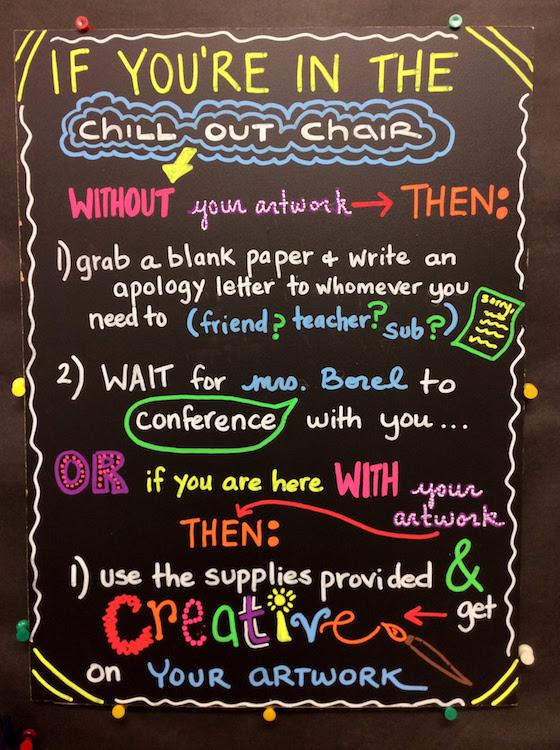 IF YOU'RE IN THE
CHILL OUT CHAIR
WITHOUT your artwork → THEN:
1) grab a blank paper + write an
apology letter to whomever you
need to (friend? teacher? sub?)
sorry,
2) WAIT for mrs. Borel to
conference with you...
OR if you are here WITH your
artwork
THEN:
1) use the supplies provided &
Creative ← get
on YOUR ARTWORK